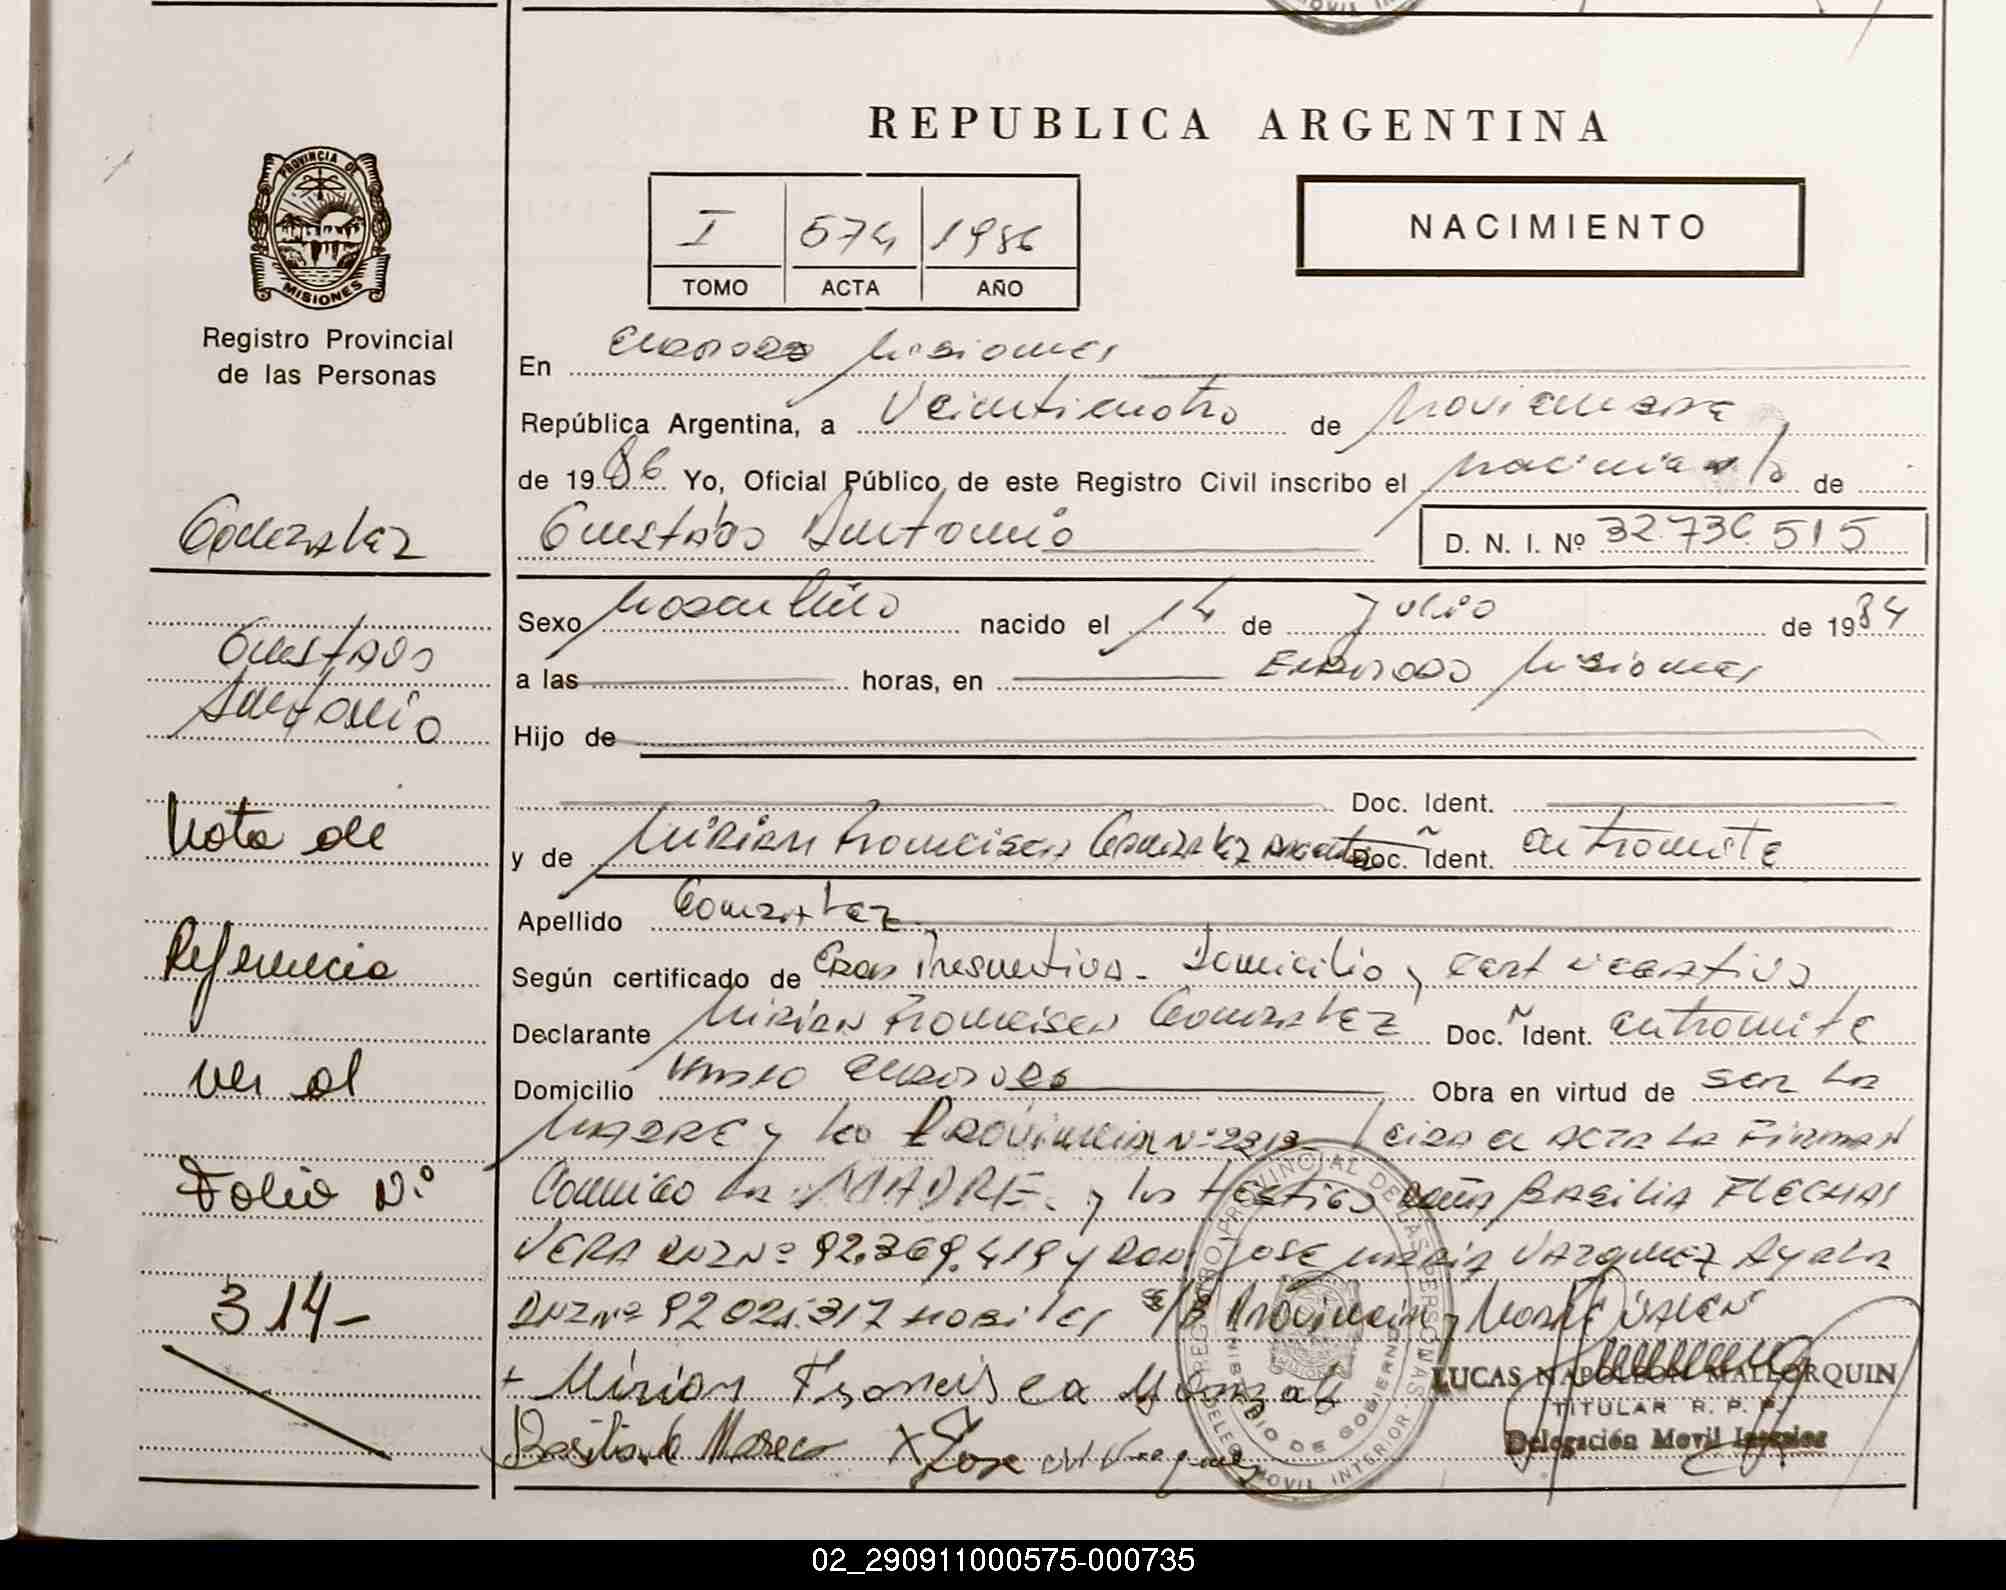 REPUBLICA ARGENTINA
PROVINCIA DE
MISIONES
Registro Provincial
de las Personas
I 574 1986
TOMO ACTA AÑO
NACIMIENTO
En Eldorado Misiones
República Argentina, a Veinticuatro de Noviembre
de 1986 Yo, Oficial Público de este Registro Civil inscribo el nacimiento de
Gustavo Antonio
D. N. I. Nº 32.736.515
Gonzalez
Gustavo
Antonio
Nota de
Referencia
ver al
Folio N.º
314-
Sexo Masculino nacido el 14 de Julio de 1984
a las horas, en Eldorado Misiones
Hijo de
Doc. Ident.
y de Mirian Francisca Gonzalez Doc. Ident. en tramite
Apellido Gonzalez
Según certificado de Edad Presuntiva - Domicilio y cert negativo
Declarante Mirian Francisca Gonzalez Doc. Ident. en tramite
Domicilio Eldorado Obra en virtud de ser la
Madre y Ley Provincial Nº Leida el acta la firman
Conmigo la MADRE. y los testigos Doña Basilia FLECHAS
VERA DNI Nº 92.369.419 y Don Jose Maria Vazquez Ayala
DNI Nº 92 021.317
+ Mirian Francisca Gonzalez
LUCAS NAPOLEON MALLORQUIN
TITULAR R. P. P.
Delegación Movil
X Jose M Vazquez
REGISTRO PROVINCIAL DE LAS PERSONAS
MOVIL INTERIOR
02_290911000575-000735